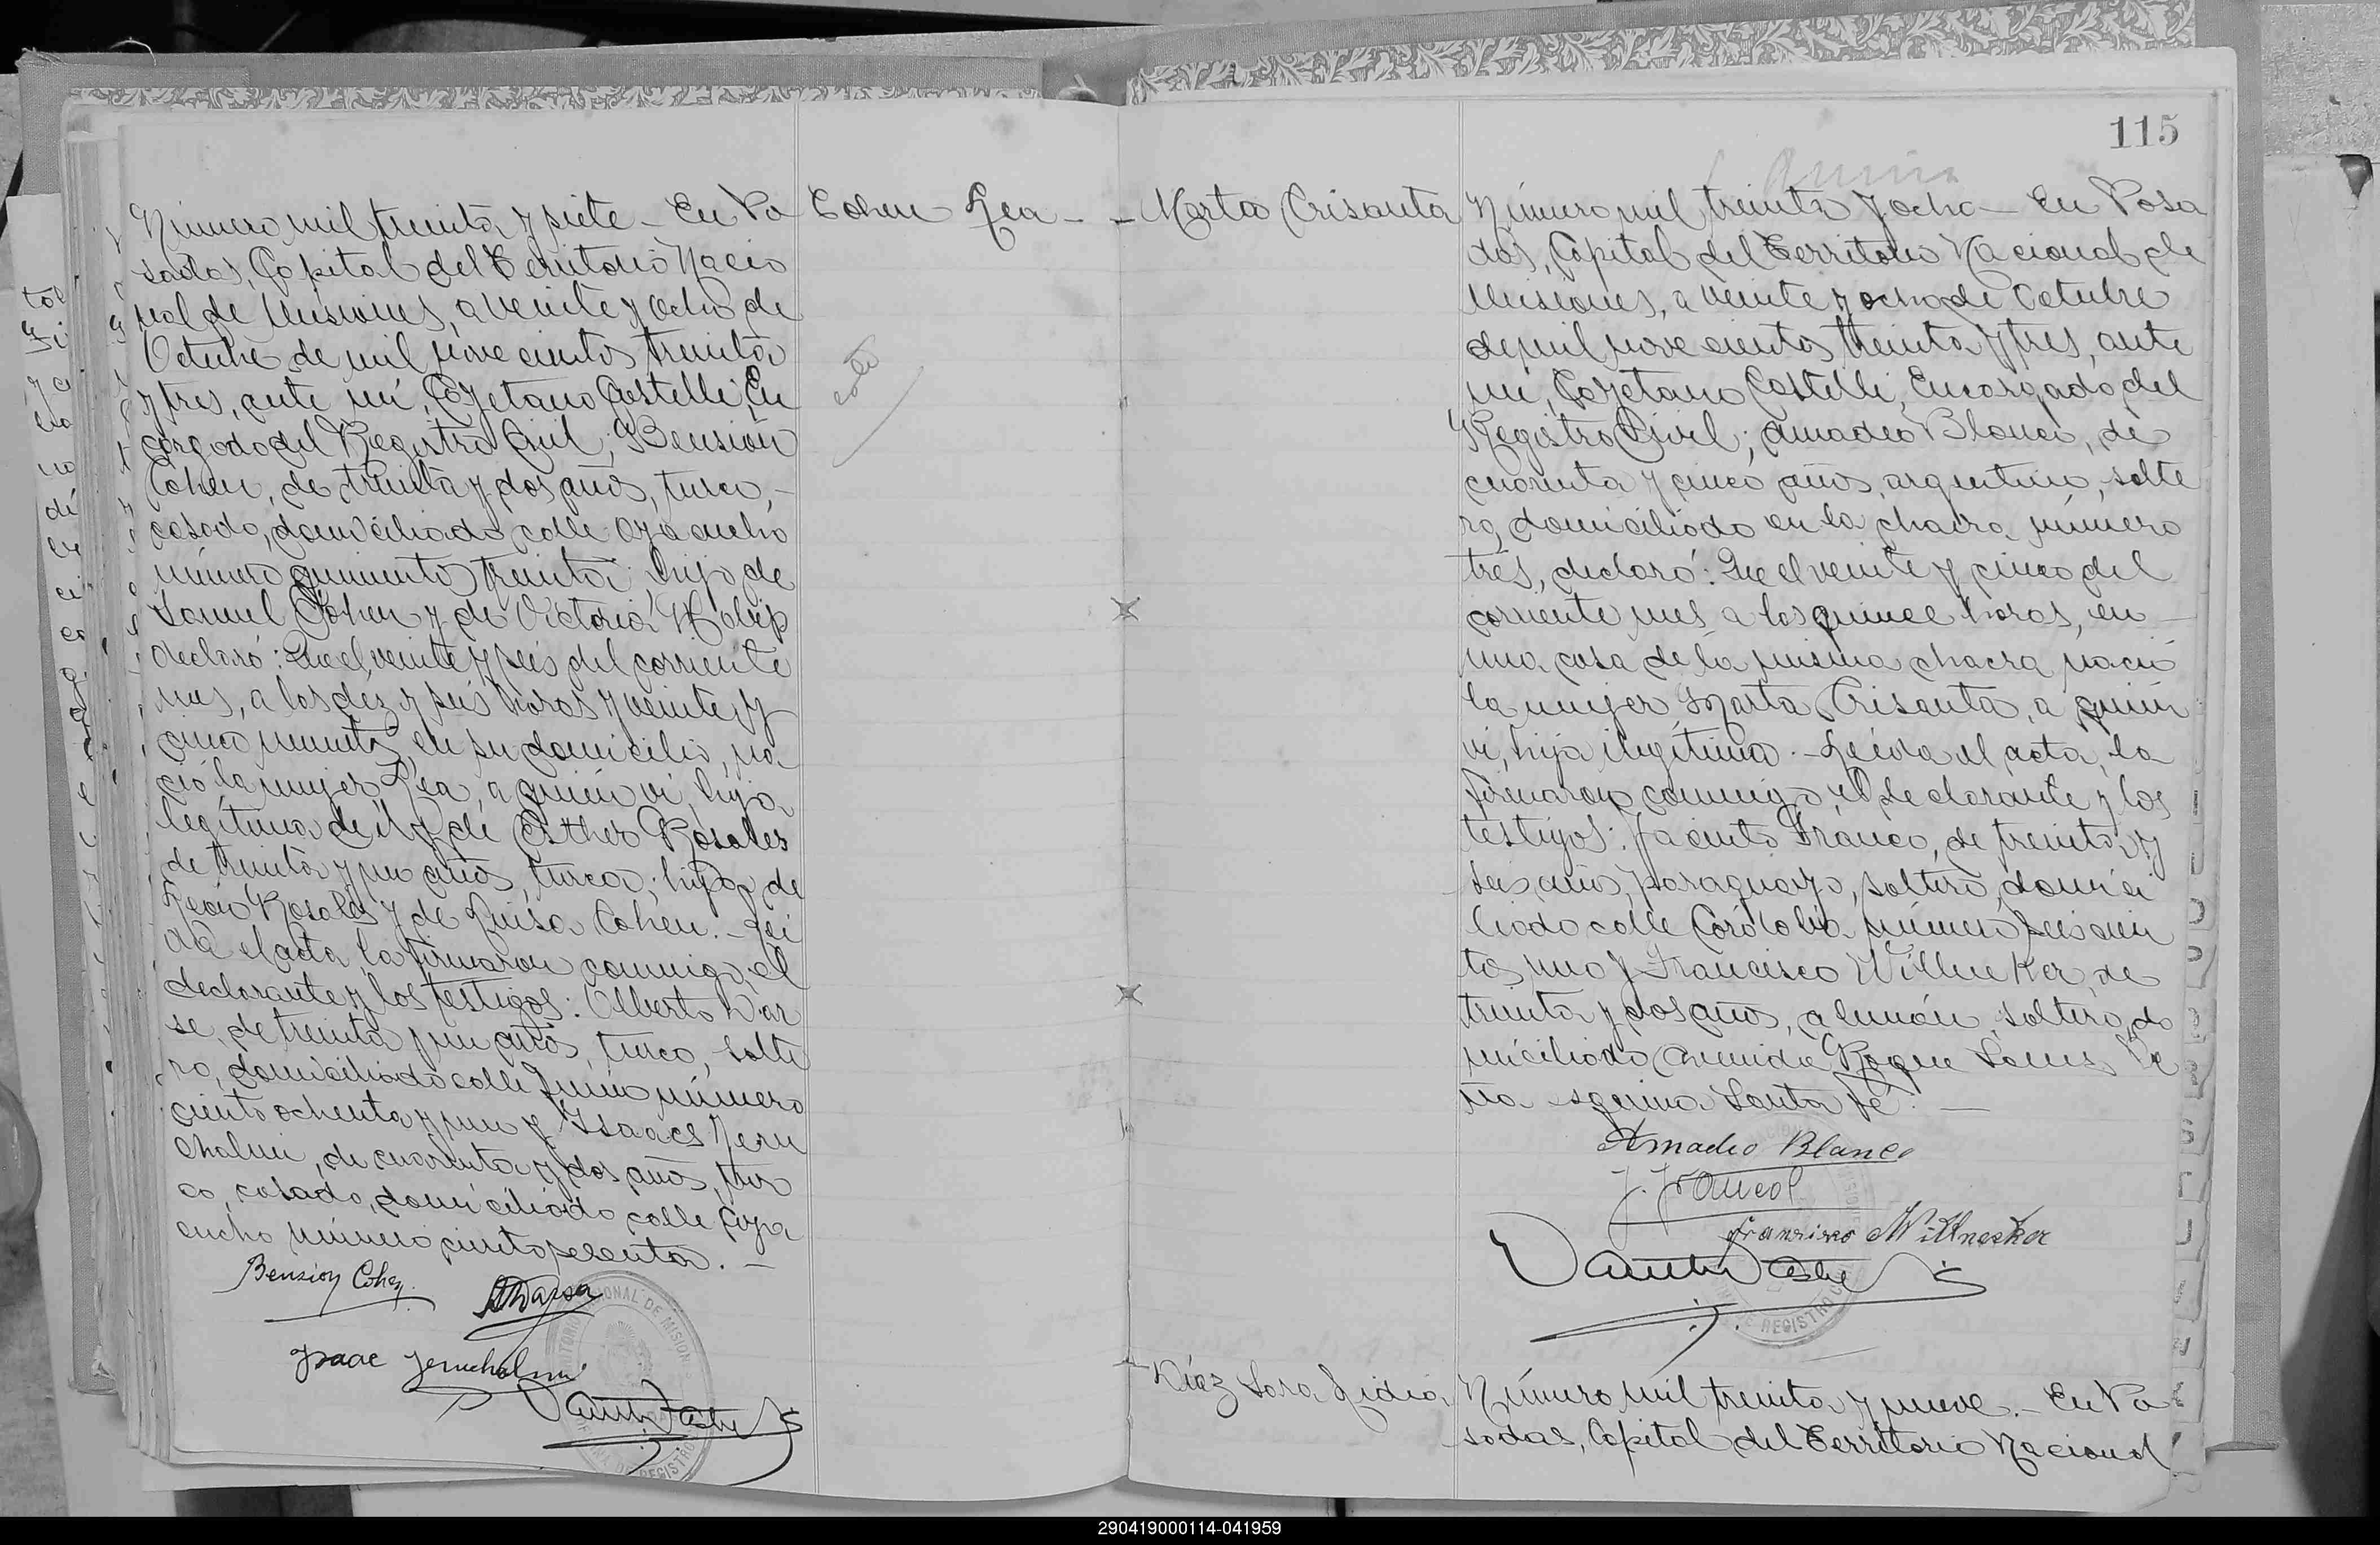 Número mil treinta y siete - En Po
sadas, Capital del Territorio Nacio
nal de Misiones, a veinte y ocho de
Octubre de mil novecientos treinta
y tres, ante mí, Cayetano Castelli, En
cargado del Registro Civil; Bensión
Cohen, de treinta y dos años, turco,
casado, domiciliado calle Ayacucho
número quinientos treinta; hijo de
Samuel Cohen y de Victoria
declaró: Que el veinte y seis del corriente
mes, a las diez y seis horas y veinte y
cinco minutos, en su domicilio, na
ció la mujer Rea, a quién vi, hija
legítima de él y de Esther Rosales
de treinta y un años, turca; hija de
León Rosales y de Luisa Cohen. - Leí
da el acta, la firmaron conmigo, el
declarante y los testigos: Alberto Dar
se, de treinta y un años, turco, solte
ro, domiciliado calle Junín número
ciento ochenta y uno y Isaac Yeru
chalmi, de cuarenta y dos años, tur
co, casado, domiciliado calle Aya
cucho número ciento sesenta. -
Benzion Cohen
Isaac Jeruchalmi
Cohen Rea -
- Marta Crisanta
115
Número mil treinta y ocho - En Posa
das, Capital del Territorio Nacional de
Misiones, a veinte y ocho de Octubre
de mil novecientos treinta y tres, ante
mí, Cayetano Castelli, Encargado del
Registro Civil; Amadeo Blanco, de
cuarenta y cinco años, argentino, solte
ro, domiciliado en la chacra número
tres, declaró: Que el veinte y cinco del
corriente mes a las quince horas, en
una casa de la misma chacra nació
la mujer Marta Crisanta, a quién
vi, hija ilegítima. - Leída el acta, la
firmaron conmigo, el declarante y los
testigos: Jacinto Franco, de treinta y
seis años, paraguayo, soltero, domici
liado calle Córdoba número seiscien
tos uno y Francisco Willnecker, de
treinta y dos años, alemán, soltero, do
miciliado Avenida Roque Saenz Pe
ña esquina Santa Fé. -
Amadeo Blanco
J. Franco
Francisco Willnecker
Díaz Sara Lidia
Número mil treinta y nueve. - En Po
sadas, Capital del Territorio Nacional
290419000114-041959